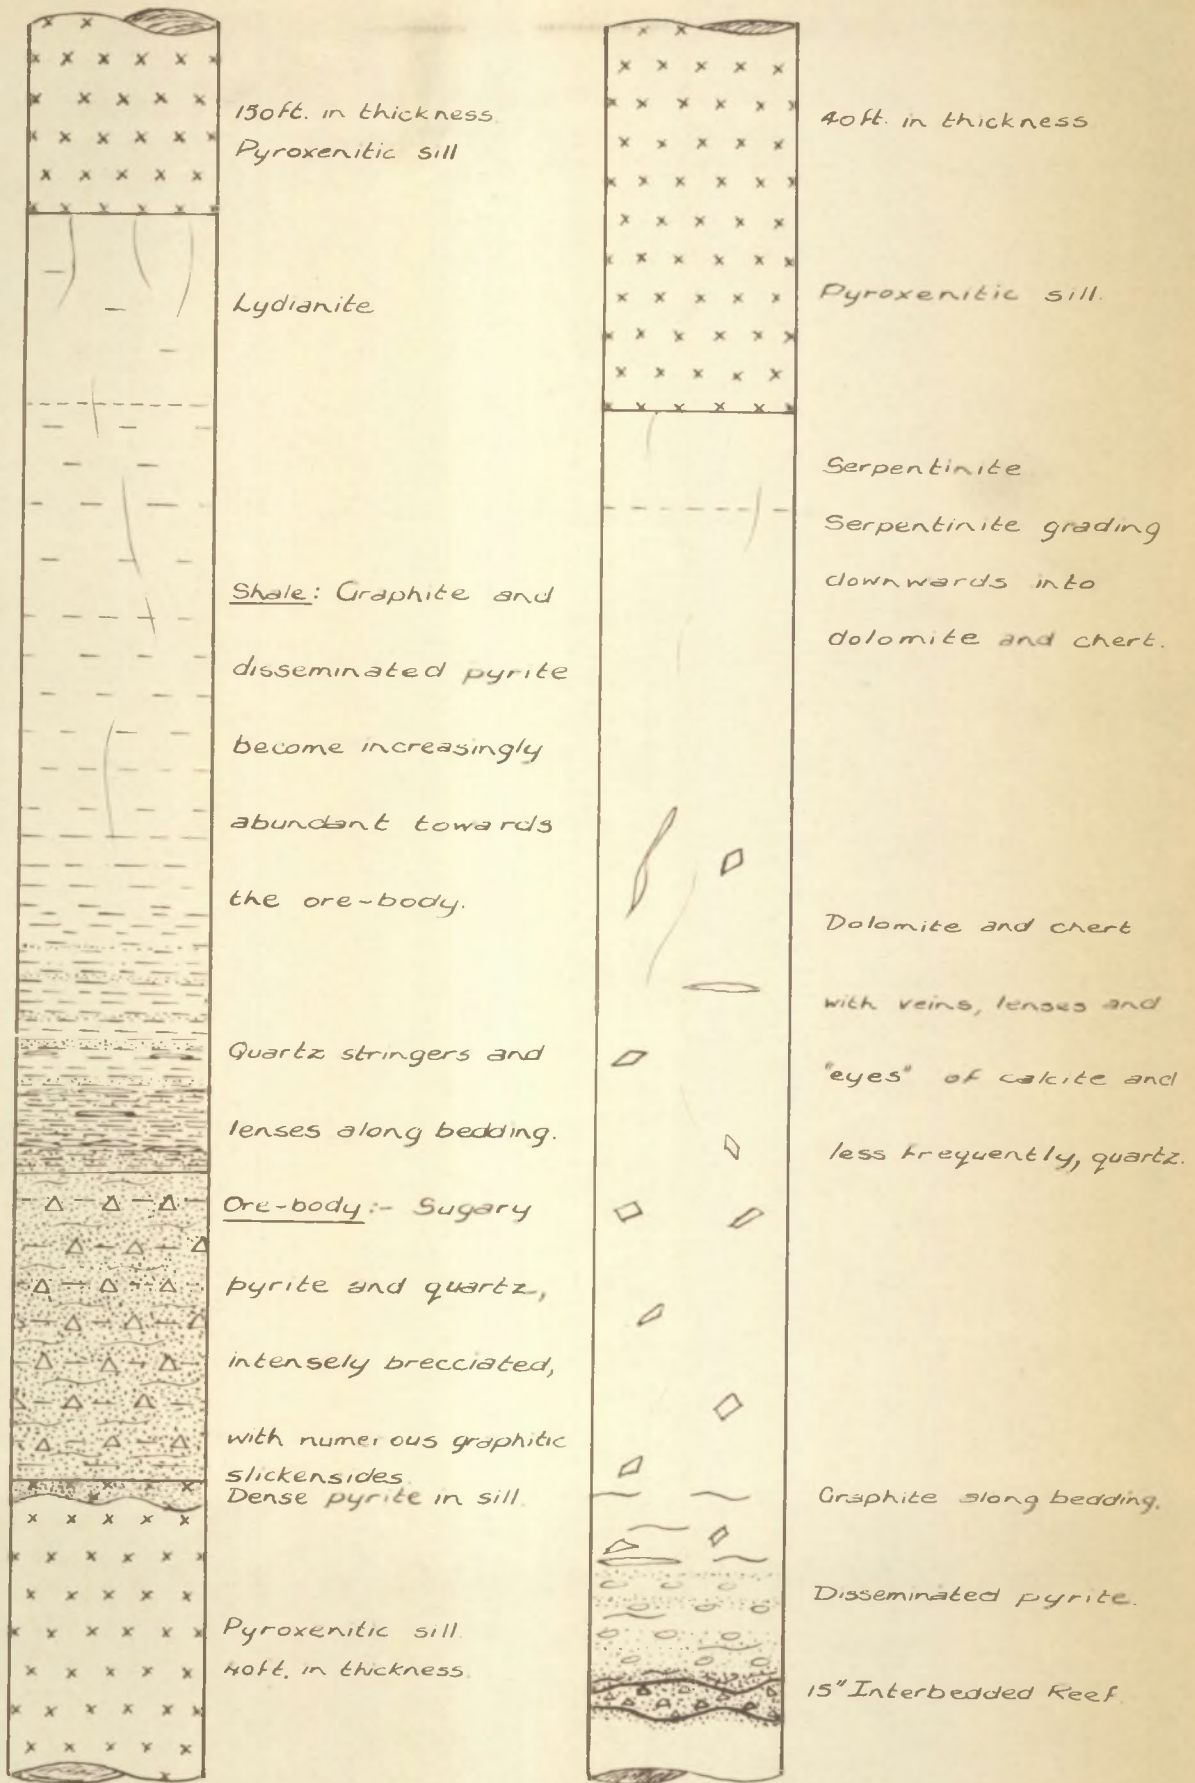 150ft. in thickness
Pyroxenitic sill
Lydianite
Shale: Graphite and
disseminated pyrite
become increasingly
abundant towards
the ore-body.
Quartz stringers and
lenses along bedding.
Ore-body:- Sugary
pyrite and quartz,
intensely brecciated,
with numerous graphitic
slickensides.
Dense pyrite in sill
Pyroxenitic sill.
40ft. in thickness.
40ft. in thickness
Pyroxenitic sill.
Serpentinite
Serpentinite grading
downwards into
dolomite and chert.
Dolomite and chert
with veins, lenses and
"eyes" of calcite and
less frequently, quartz.
Graphite along bedding.
Disseminated pyrite.
15" Interbedded Reef.